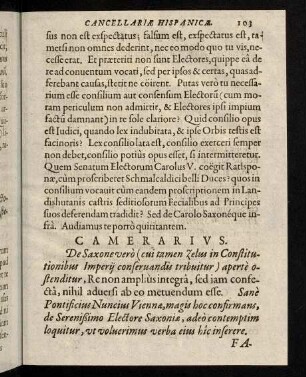 CANCELLARIÆ HISPANICÆ. 103
sus non est exspectatus; falsum est, exspectatus est, ta-
metsi non omnes dederint, nec eo modo quo tu vis, ne-
cesse erat. Et præteriti non sunt Electores, quippe eâ de
re ad conuentum vocati, sed per ipsos & certas, quas ad-
ferebant causas, stetit ne coirent. Putas verò tu necessa-
rium esse consilium aut consensum Electorũ (cum mo-
ram periculum non admittit, & Electores ipsi impium
factũ damnant) in re sole clariore? Quid consilio opus
est Iudici, quando lex indubitata, & ipse Orbis testis est
facinoris? Lex consilio lata est, consilio exerceri semper
non debet, consilio potiùs opus esset, si intermitteretur.
Quem Senatum Electorum Carolus V. coëgit Ratispo-
næ, cùm proscriberet Schmalcaldici belli Duces? quos in
consilium vocauit cùm eandem proscriptionem in Lan-
dishutanis castris seditiosorum Fecialibus ad Principes
suos deferendam tradidit? Sed de Carolo Saxonéque in-
frà. Audiamus te porrò quiritantem.
CAMERARIVS.
De Saxone verò (cui tamen zelus in Constitu-
tionibus Imperij conseruandis tribuitur) apertè o-
stenditur, Re non ampliùs integrâ, sed jam confe-
ctâ, nihil aduersi ab eo metuendum esse. Sanè
Pontificius Nuncius Viennæ, magis hoc confirmans,
de Serenissimo Electore Saxoniæ, adeò contemptim
loquitur, vt voluerimus verba eius hîc inserere.
FA-